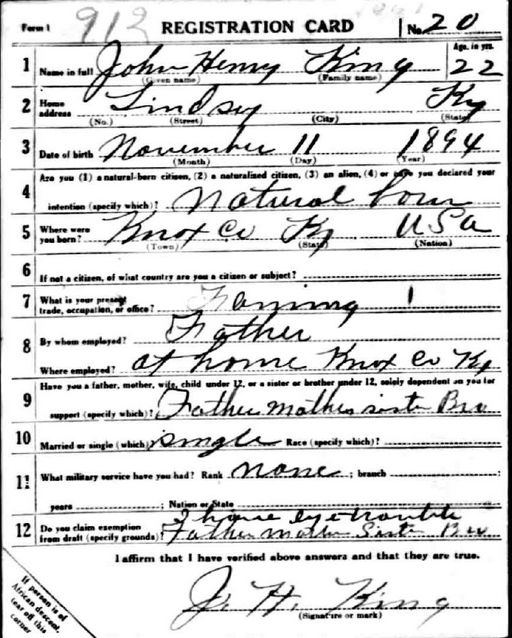 Form 1 913 REGISTRATION CARD No. 20
1 Name in full John Henry King Age, in yrs. 22
(Given name) (Family name)
2 Home address Lindsey Ky
(No.) (Street) (City) (State)
3 Date of birth November 11 1894
(Month) (Day) (Year)
4 Are you (1) a natural-born citizen, (2) a naturalized citizen, (3) an alien, (4) or have you declared your
intention (specify which)? Natural born
5 Where were you born? Knox Co Ky USA
(Town) (State) (Nation)
6 If not a citizen, of what country are you a citizen or subject?
7 What is your present trade, occupation, or office? Farming 1
8 By whom employed? Father
Where employed? at home Knox Co Ky
9 Have you a father, mother, wife, child under 12, or a sister or brother under 12, solely dependent on you for
support (specify which)? Father Mother sister Bro
10 Married or single (which)? single Race (specify which)?
11 What military service have you had? Rank none ; branch
years ; Nation or State
I have eye trouble
12 Do you claim exemption from draft (specify grounds)? Father Mother Sister Bro
I affirm that I have verified above answers and that they are true.
J. H. King
(Signature or mark)
If person is of
African descent,
tear off this
corner